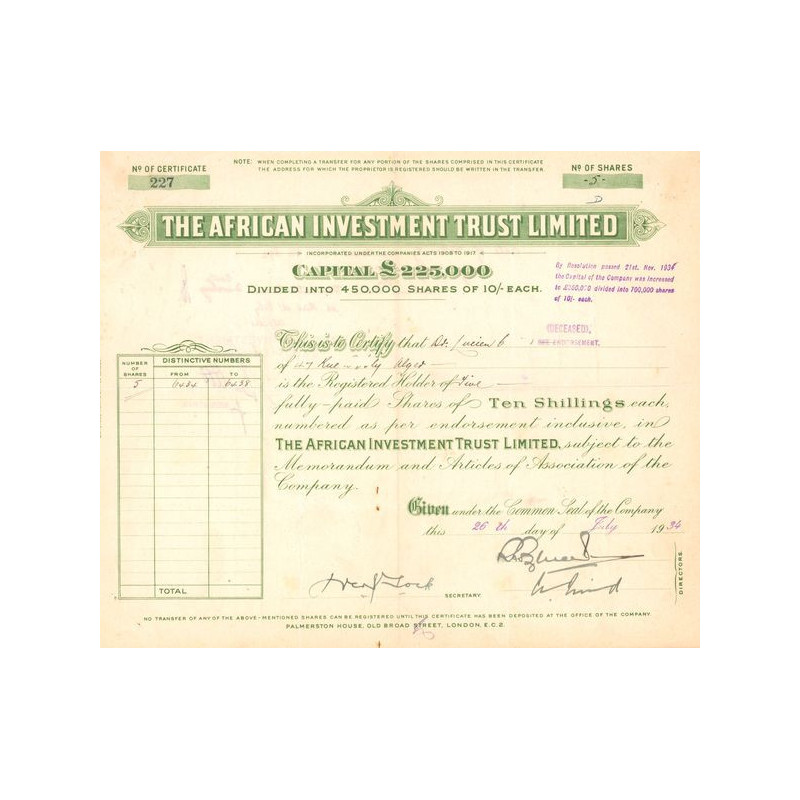 Nº OF CERTIFICATE
227
NOTE: WHEN COMPLETING A TRANSFER FOR ANY PORTION OF THE SHARES COMPRISED IN THIS CERTIFICATE
THE ADDRESS FOR WHICH THE PROPRIETOR IS REGISTERED SHOULD BE WRITTEN IN THE TRANSFER.
Nº OF SHARES
-5-
THE AFRICAN INVESTMENT TRUST LIMITED
INCORPORATED UNDER THE COMPANIES ACTS 1908 TO 1917
CAPITAL £225,000
DIVIDED INTO 450,000 SHARES OF 10/- EACH.
By Resolution passed 21st. Nov. 1934
the Capital of the Company was increased
to £350,000 divided into 700,000 shares
of 10/- each.
(DECEASED),
This is to Certify that Dr. Lucien
ENDORSEMENT.
of 47 Rue Alger
is the Registered Holder of Five
fully-paid Shares of Ten Shillings each,
numbered as per endorsement inclusive, in
THE AFRICAN INVESTMENT TRUST LIMITED, subject to the
Memorandum and Articles of Association of the
Company.
NUMBER OF SHARES
DISTINCTIVE NUMBERS
FROM TO
5 6434 6438
TOTAL
Given under the Common Seal of the Company
this 26th day of July 1934
SECRETARY.
DIRECTORS.
NO TRANSFER OF ANY OF THE ABOVE-MENTIONED SHARES CAN BE REGISTERED UNTIL THIS CERTIFICATE HAS BEEN DEPOSITED AT THE OFFICE OF THE COMPANY.
PALMERSTON HOUSE, OLD BROAD STREET, LONDON, E.C.2.